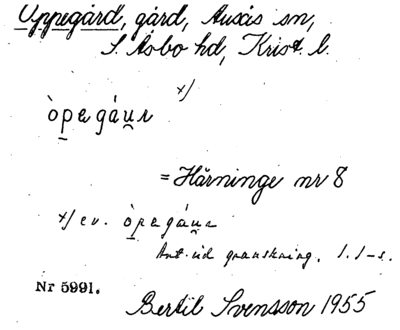 Uppegård, gård, Ausås sn,
S. Åsbo hd, Krist. l.
x)
òpegáu̯ɹ
= Härninge nr 8
x) ev. òpegáu̯ɹ
Ant. vid granskning. I. I-s.
Nr 5991.
Bertil Svensson 1955